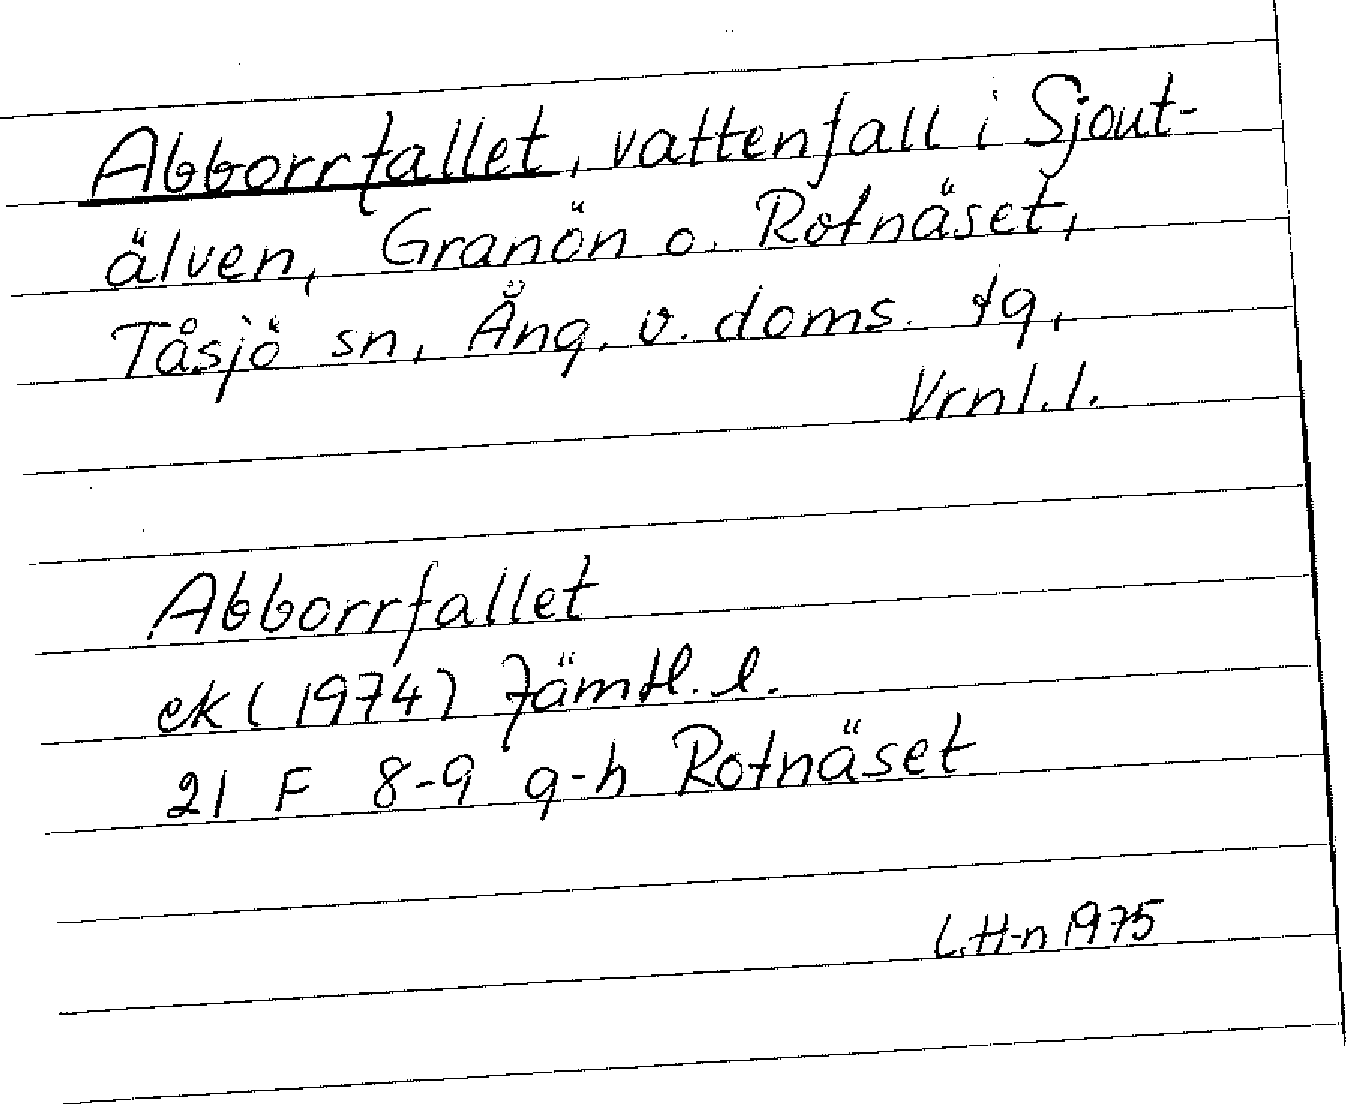 Abborrfallet, vattenfall i Sjout-
älven, Granön o. Rotnäset,
Tåsjö sn, Ång. v. doms. tg,
Vrnl.l.
Abborrfallet
ek (1974) Jämtl. l.
21 F 8-9 g-h Rotnäset
L.H-n 1975